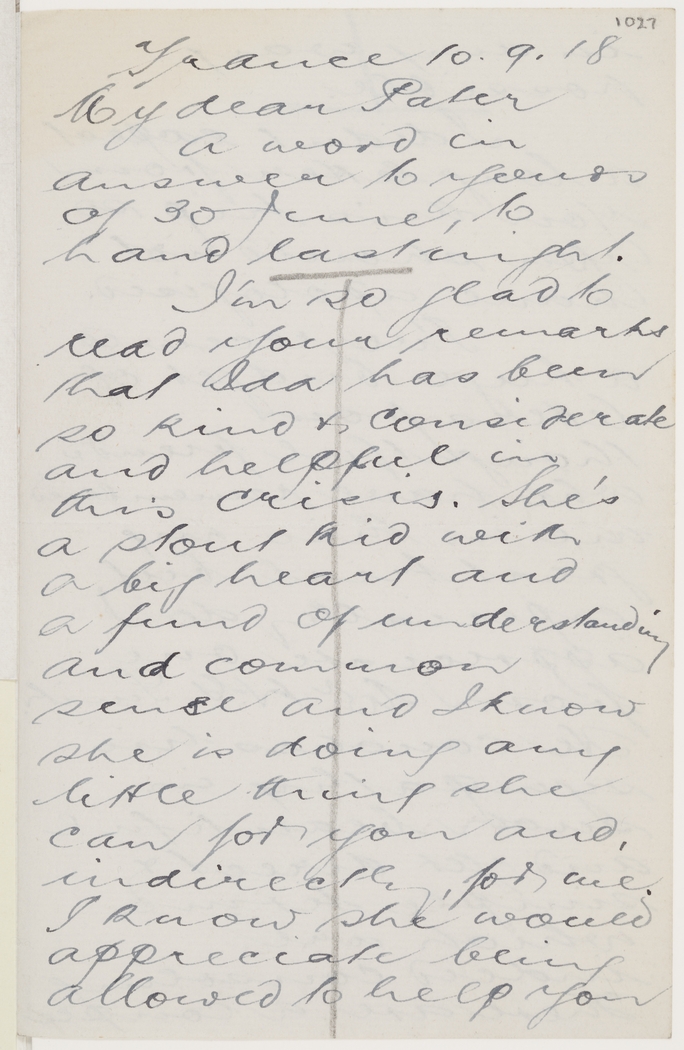 1027
France 10.9.18
My dear Pater
A word in
answer to yours
of 30 June, to
hand last night.
I'm so glad to
read your remarks
that Ida has been
so kind & considerate
and helpful in
this crisis. She's
a stout kid with
a big heart and
a fund of understanding
and common
sense and I know
she is doing any
little thing she
can for you and,
indirectly, for me.
I know she would
appreciate being
allowed to help you